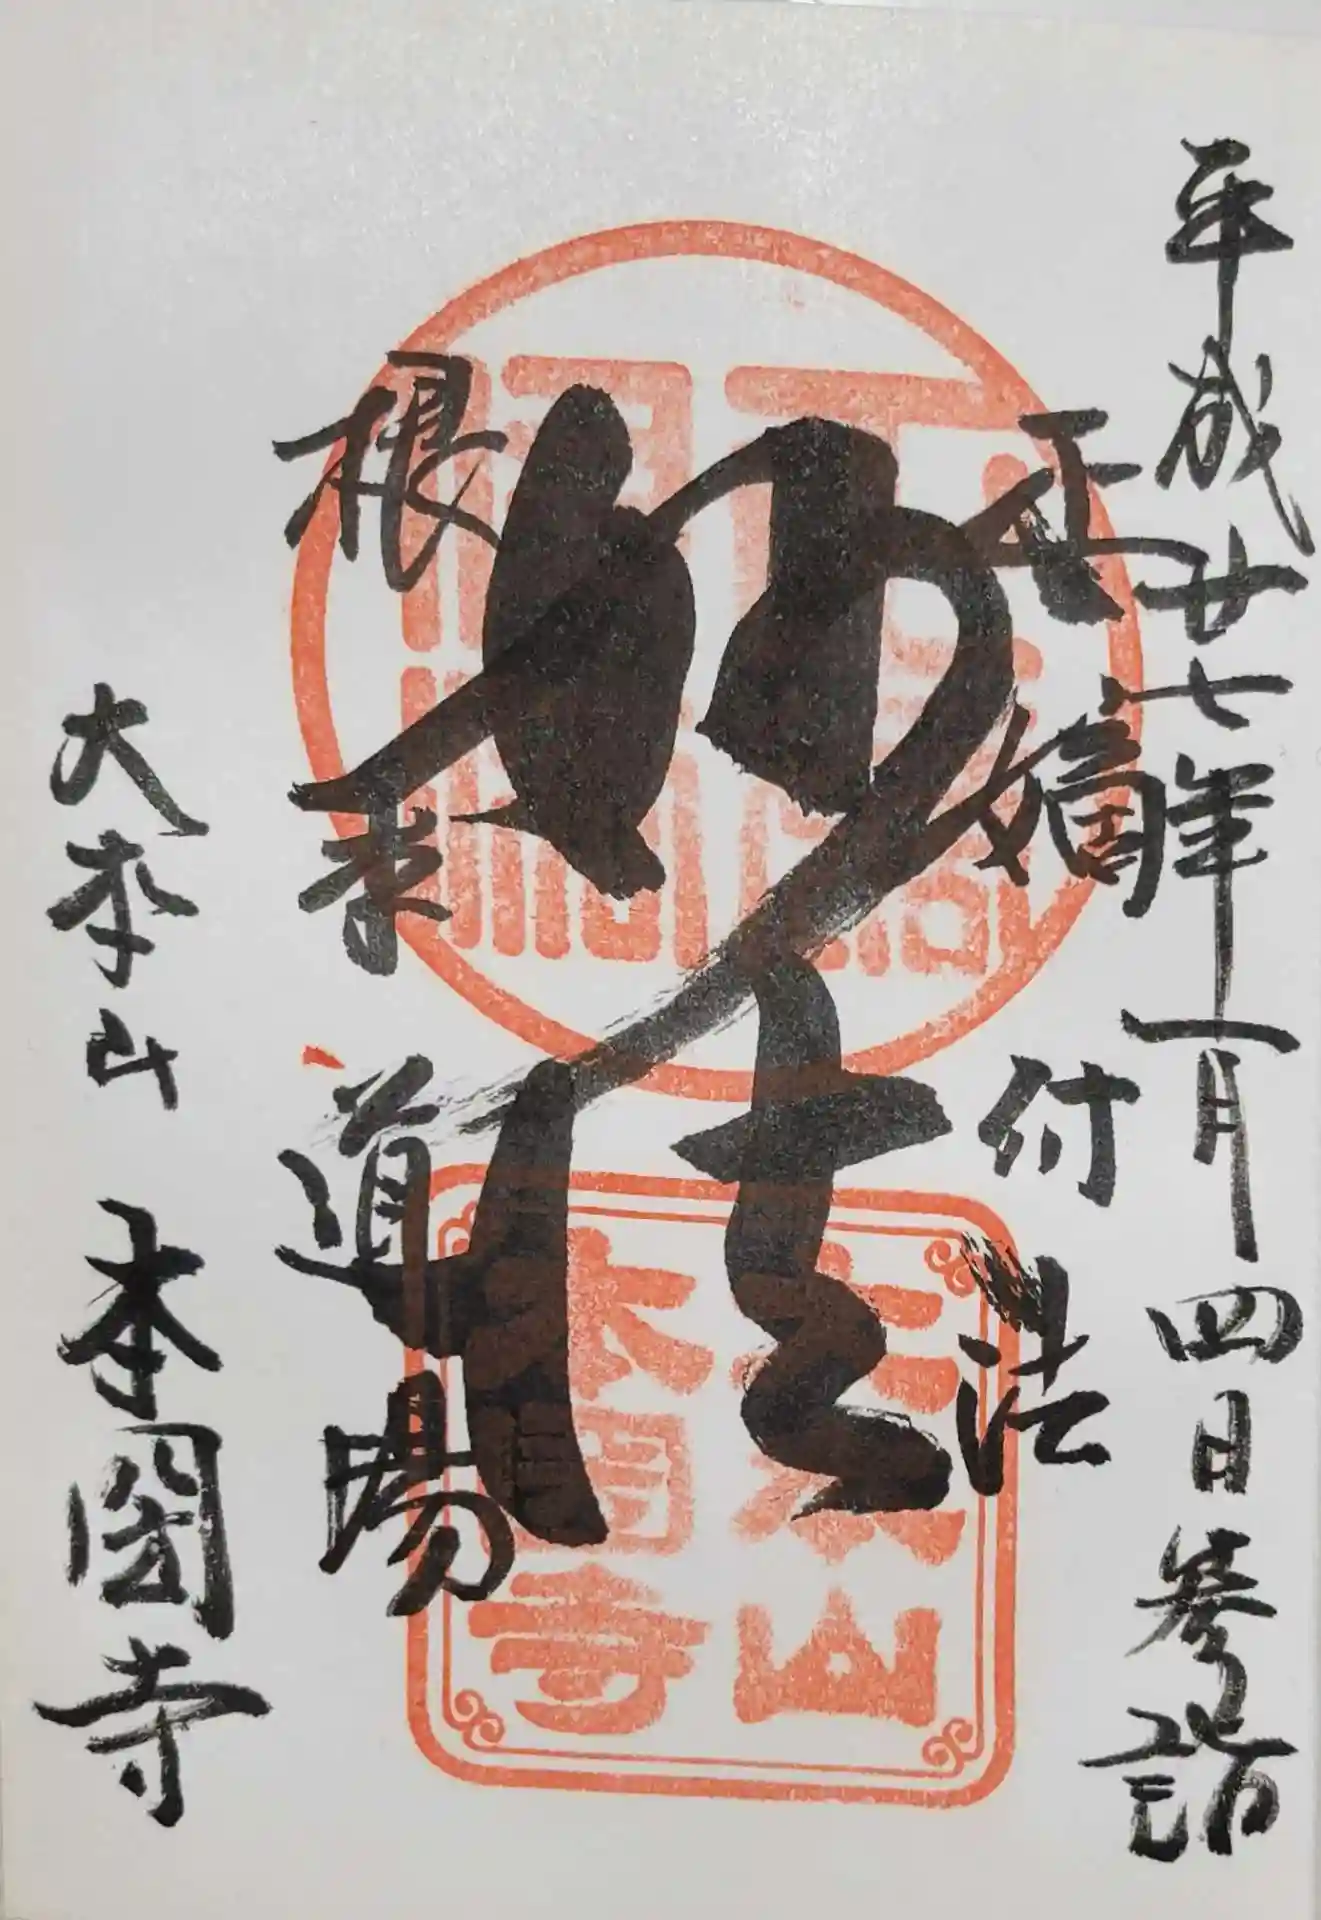 平成廿七年一月四日参詣
正嫡付法
妙法
根本道場
大本山 本圀寺
大本山
本圀寺